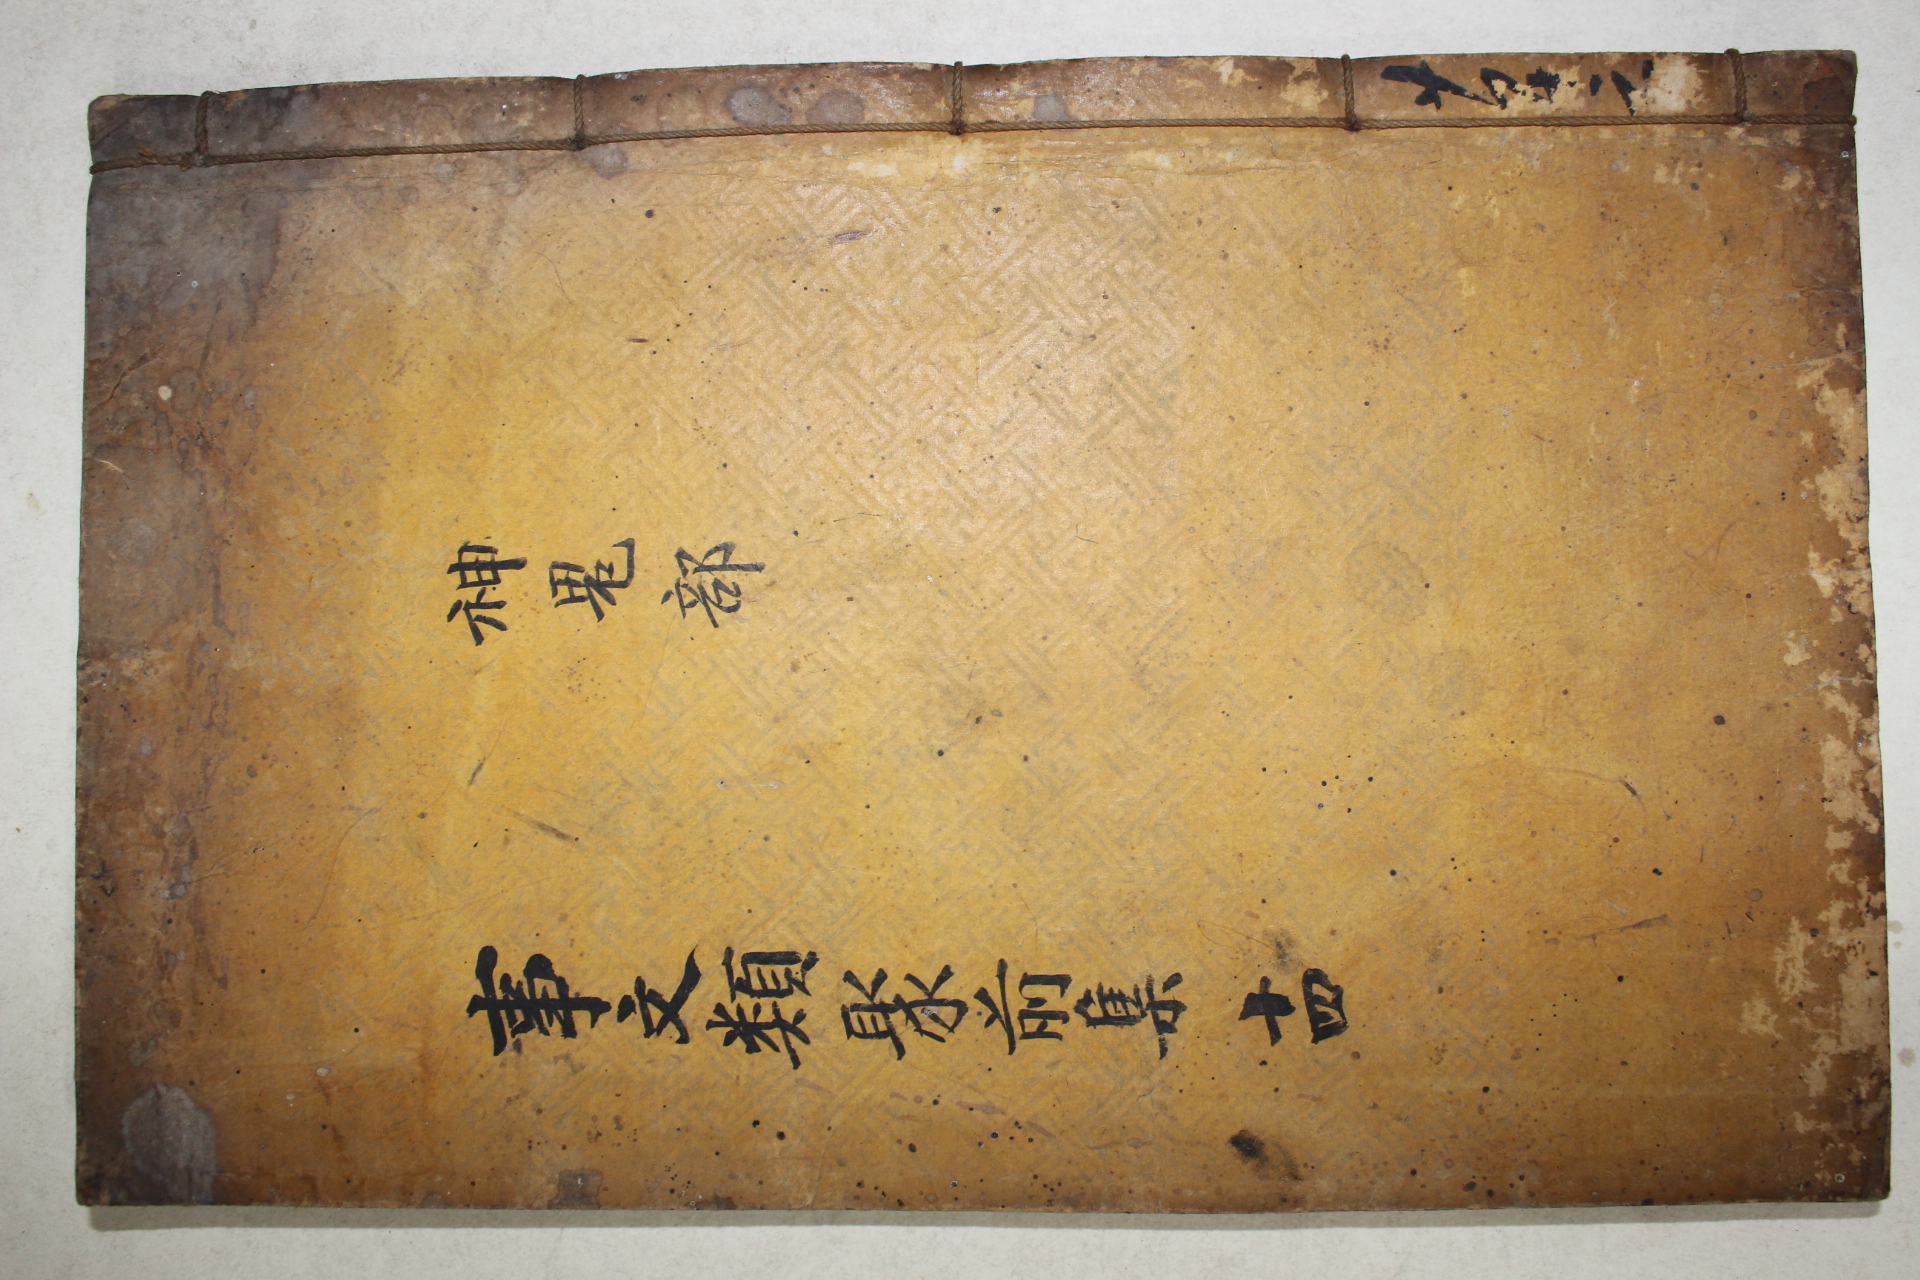 事文類聚前集 十四
神鬼部